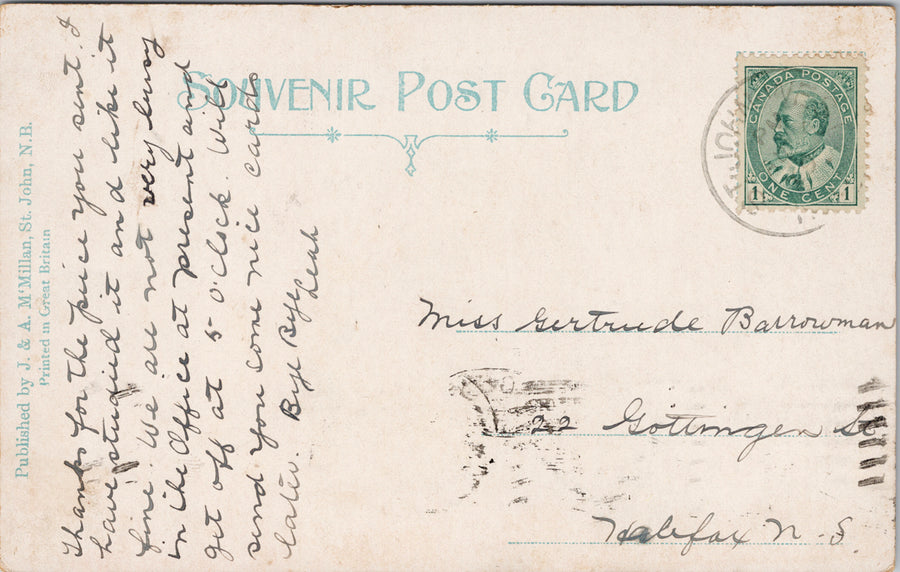 SOUVENIR POST CARD
CANADA POSTAGE
ONE CENT
1 1
Published by J. & A. McMillan, St. John, N.B.
Printed in Great Britain
Thanks for the piece you sent. I
have studied it and like it
fine. We are not very busy
in the Office at present and
get off at 5 o'clock. Will
send you some nice cards
later. Bye Bye
Leah
Miss Gertrude Barrowman
22 Gottingen St
Halifax N.S.